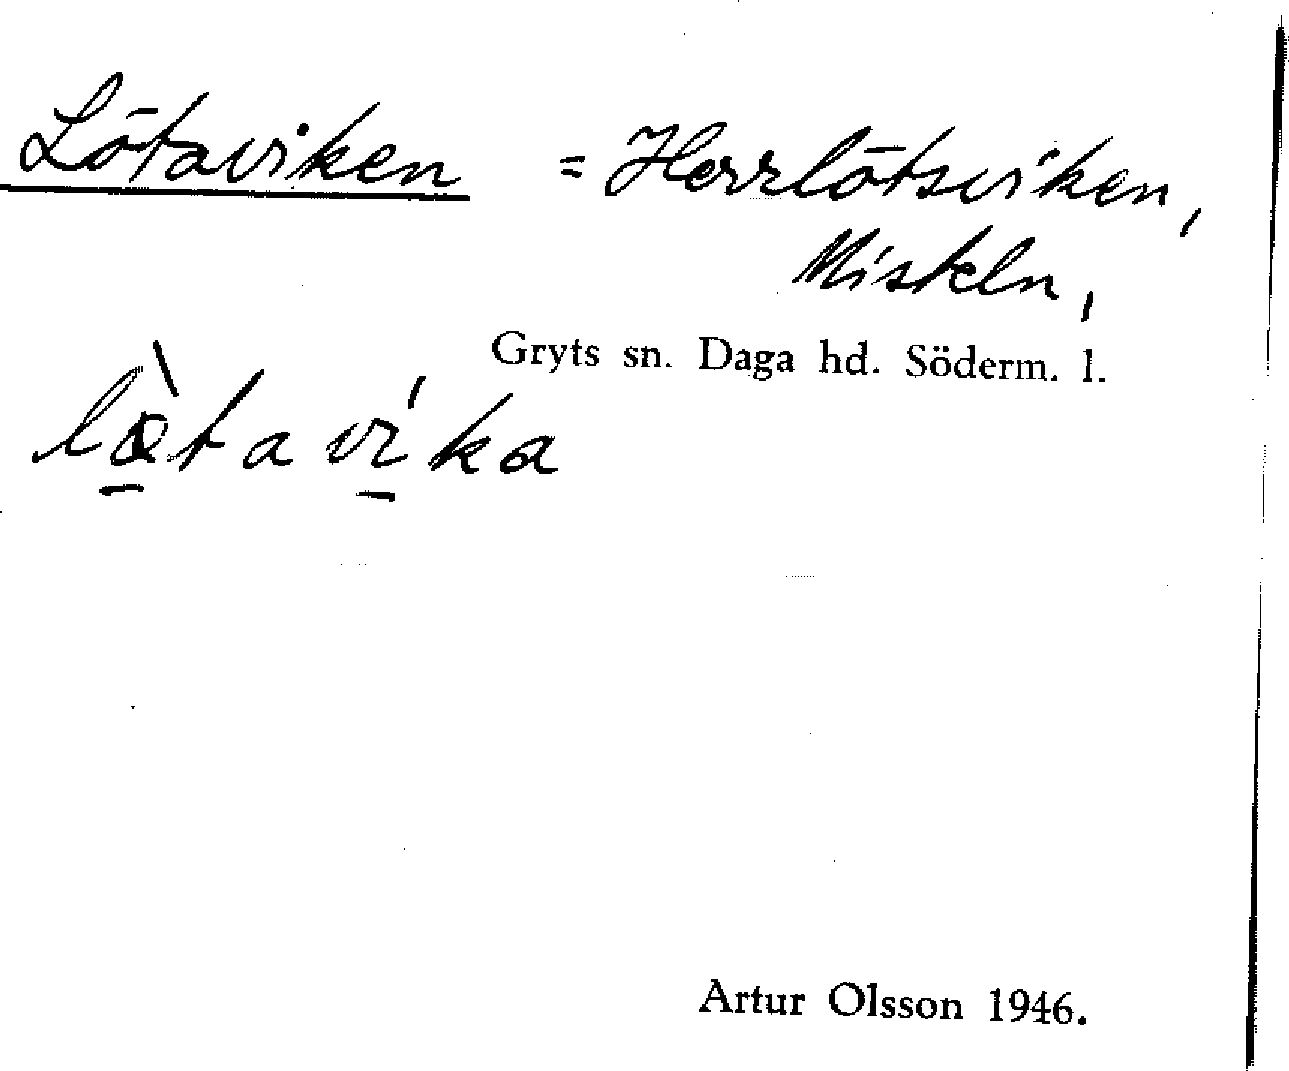 Lötaviken = Herrlötsviken,
Miskeln,
Gryts sn. Daga hd. Söderm. l.
Artur Olsson 1946.